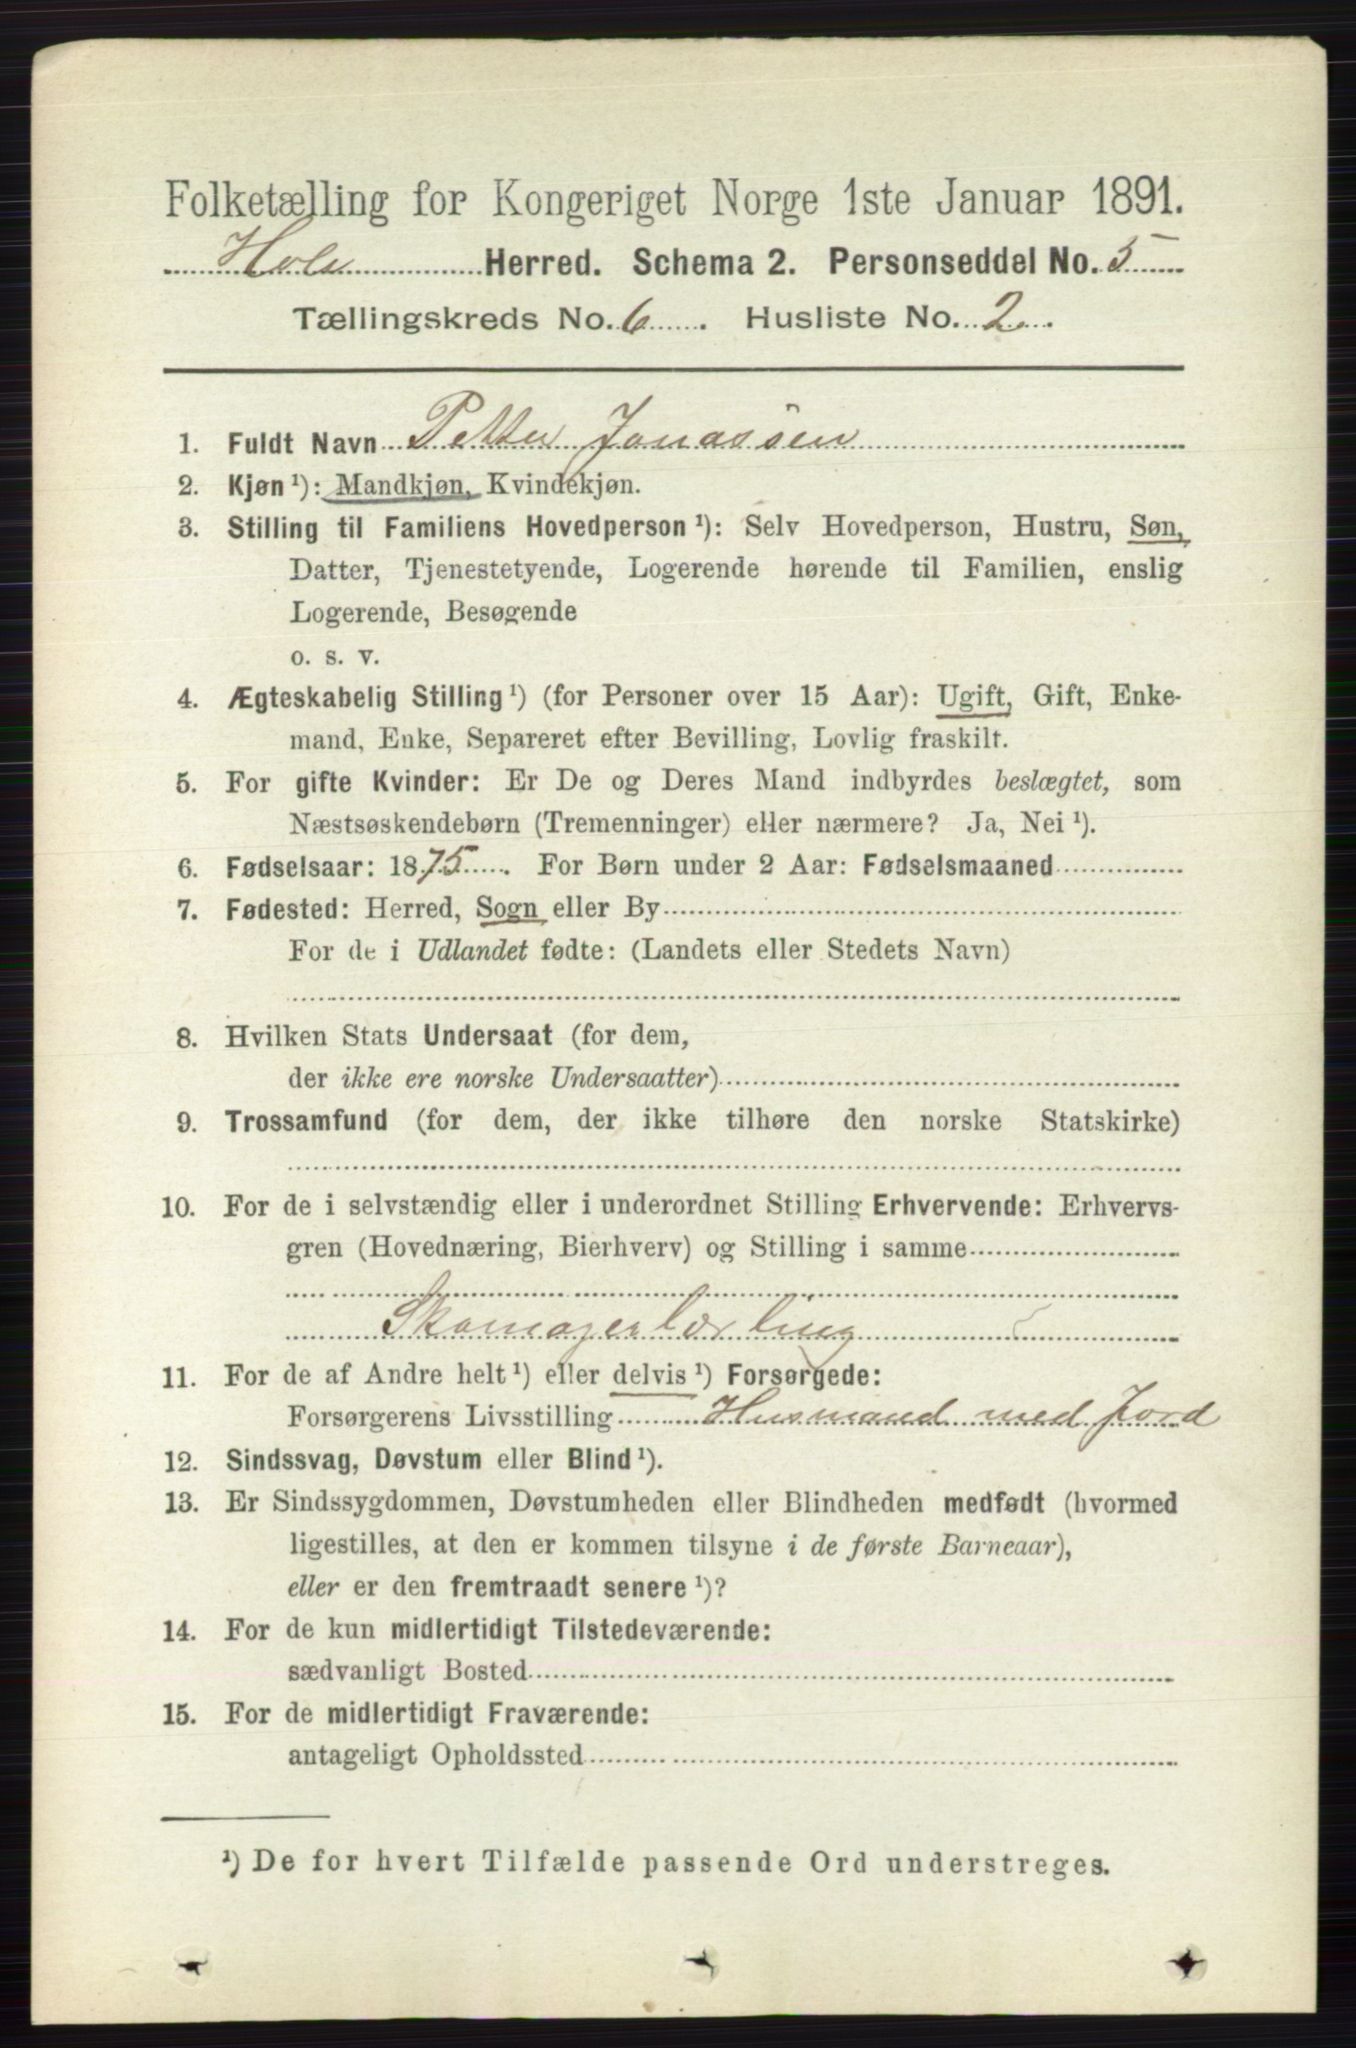 Folketælling for Kongeriget Norge 1ste Januar 1891.
Hole Herred. Schema 2. Personseddel No. 5
Tællingskreds No. 6 . Husliste No. 2 .
1. Fuldt Navn Petter Jonassen
2. Kjøn ¹): Mandkjøn, Kvindekjøn.
3. Stilling til Familiens Hovedperson ¹): Selv Hovedperson, Hustru, Søn,
Datter, Tjenestetyende, Logerende hørende til Familien, enslig
Logerende, Besøgende
o. s. v.
4. Ægteskabelig Stilling ¹) (for Personer over 15 Aar): Ugift, Gift, Enke-
mand, Enke, Separeret efter Bevilling, Lovlig fraskilt.
5. For gifte Kvinder: Er De og Deres Mand indbyrdes beslægtet, som
Næstsøskendebørn (Tremenninger) eller nærmere? Ja, Nei ¹).
6. Fødselsaar: 1875 . For Børn under 2 Aar: Fødselsmaaned
7. Fødested: Herred, Sogn eller By
For de i Udlandet fødte: (Landets eller Stedets Navn)
8. Hvilken Stats Undersaat (for dem,
der ikke ere norske Undersaatter)
9. Trossamfund (for dem, der ikke tilhøre den norske Statskirke)
10. For de i selvstændig eller i underordnet Stilling Erhvervende: Erhvervs-
gren (Hovednæring, Bierhverv) og Stilling i samme
Skomagerlærling
11. For de af Andre helt ¹) eller delvis ¹) Forsørgede:
Forsørgerens Livsstilling Husmand med Jord
12. Sindssvag, Døvstum eller Blind ¹).
13. Er Sindssygdommen, Døvstumheden eller Blindheden medfødt (hvormed
ligestilles, at den er kommen tilsyne i de første Barneaar),
eller er den fremtraadt senere ¹)?
14. For de kun midlertidigt Tilstedeværende:
sædvanligt Bosted
15. For de midlertidigt Fraværende:
antageligt Opholdssted
¹) De for hvert Tilfælde passende Ord understreges.